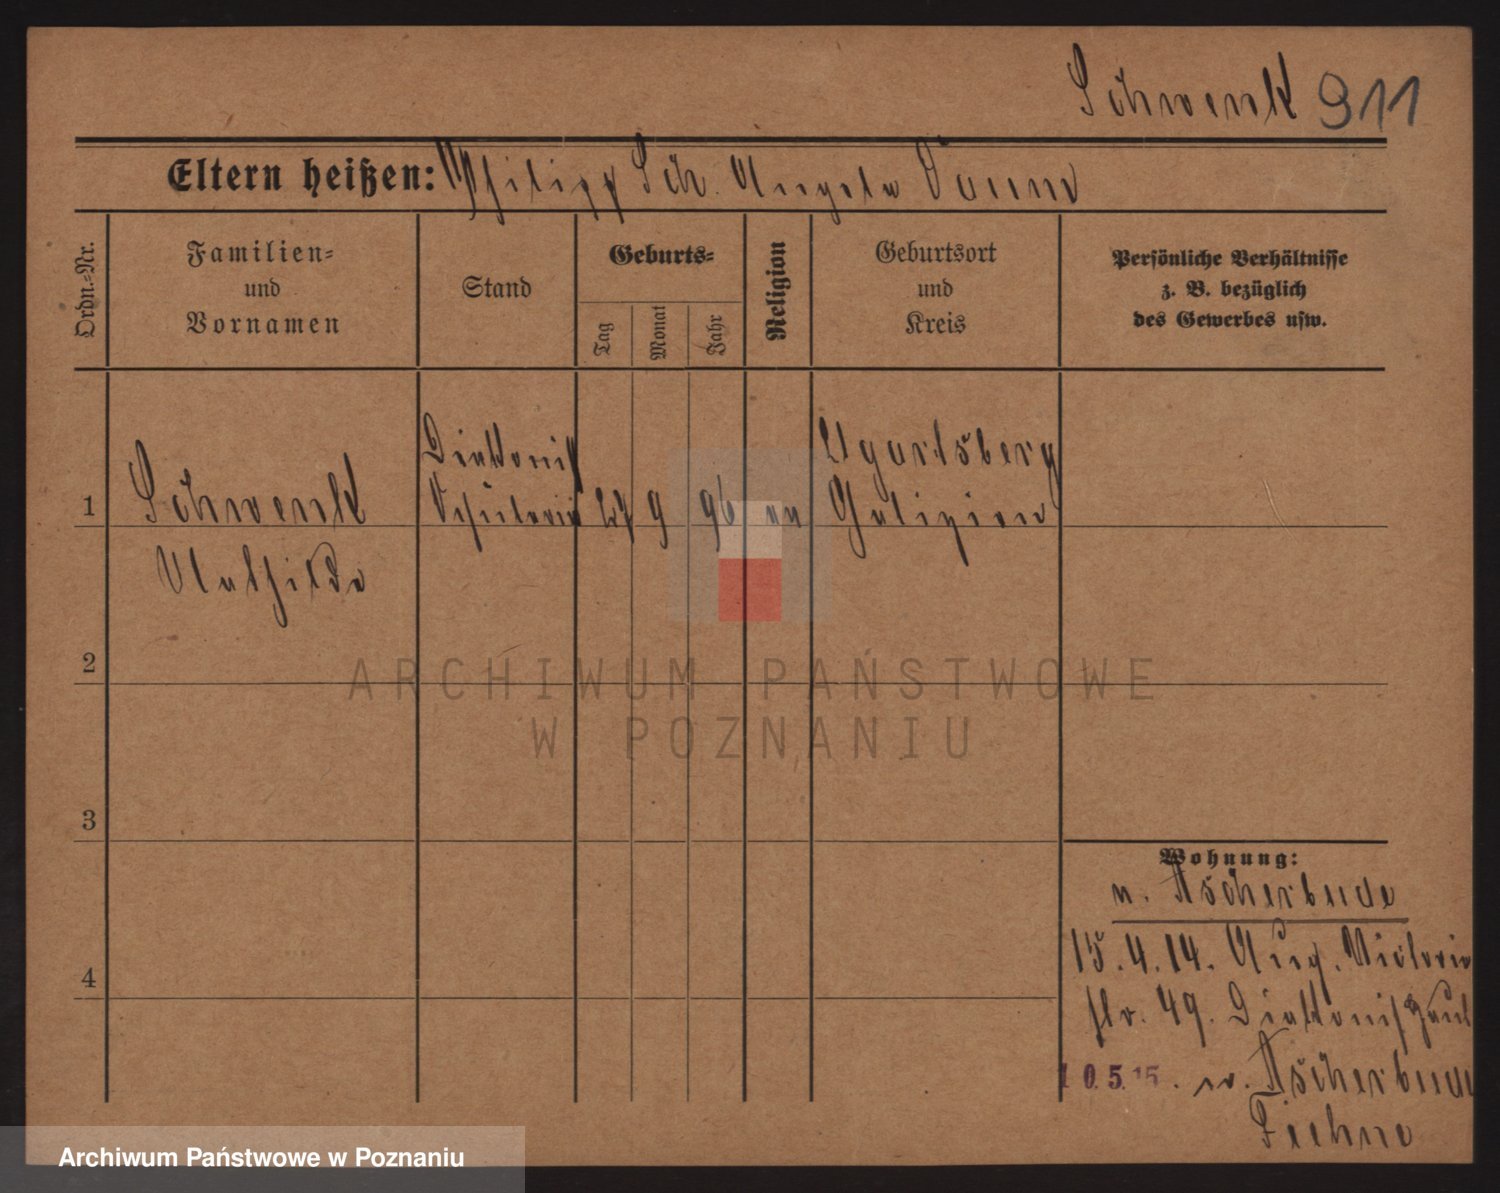 Schwenk 911
Eltern heißen: Philipp Sch. Angela Daum
Ordn.=Nr.
Familien=
und
Vornamen
Stand
Geburts=
Tag
Monat
Jahr
Religion
Geburtsort
und
Kreis
Persönliche Verhältnisse
z. B. bezüglich
des Gewerbes usw.
1
Schwenk
Mathilde
Diakoniss
Schülerin
27 9 96
Ugartsberg
Galizien
2
3
4
Wohnung:
n. Ascherbude
15.4.14. Aug. Victoria
str. 49. Diakonisshaus
10.5.15. n. Ascherbude
Filehne
ARCHIWUM PAŃSTWOWE
W POZNANIU
Archiwum Państwowe w Poznaniu